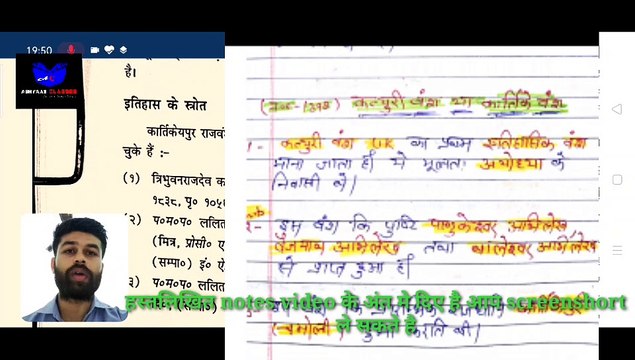 19:50
ABHYAAS CLASSES
है।
इतिहास के स्रोत
कार्तिकेयपुर राजवं
चुके हैं :-
(१) त्रिभुवनराजदेव क
१८३८, पृ० १०५
(२) प०म०प० ललित
(मित्र, प्रोसी० ऐ
सम्पा०) इं० ऐ
३) प०म०प० ललित
कत्यूरी वंश या कार्तिके वंश
1- कत्यूरी वंश UK का प्रथम ऐतिहासिक वंश
माना जाता है। ये मूलतः अयोध्या के
निवासी थे।
2- इस वंश कि पुष्टि पाण्डुकेश्वर अभिलेख
बैजनाथ अभिलेख तथा बालेश्वर अभिलेख
से प्राप्त हुआ है।
(चमोली) हुआ करती थी।
हस्तलिखित notes video के अंत मे दिए है आप screenshort
ले सकते है